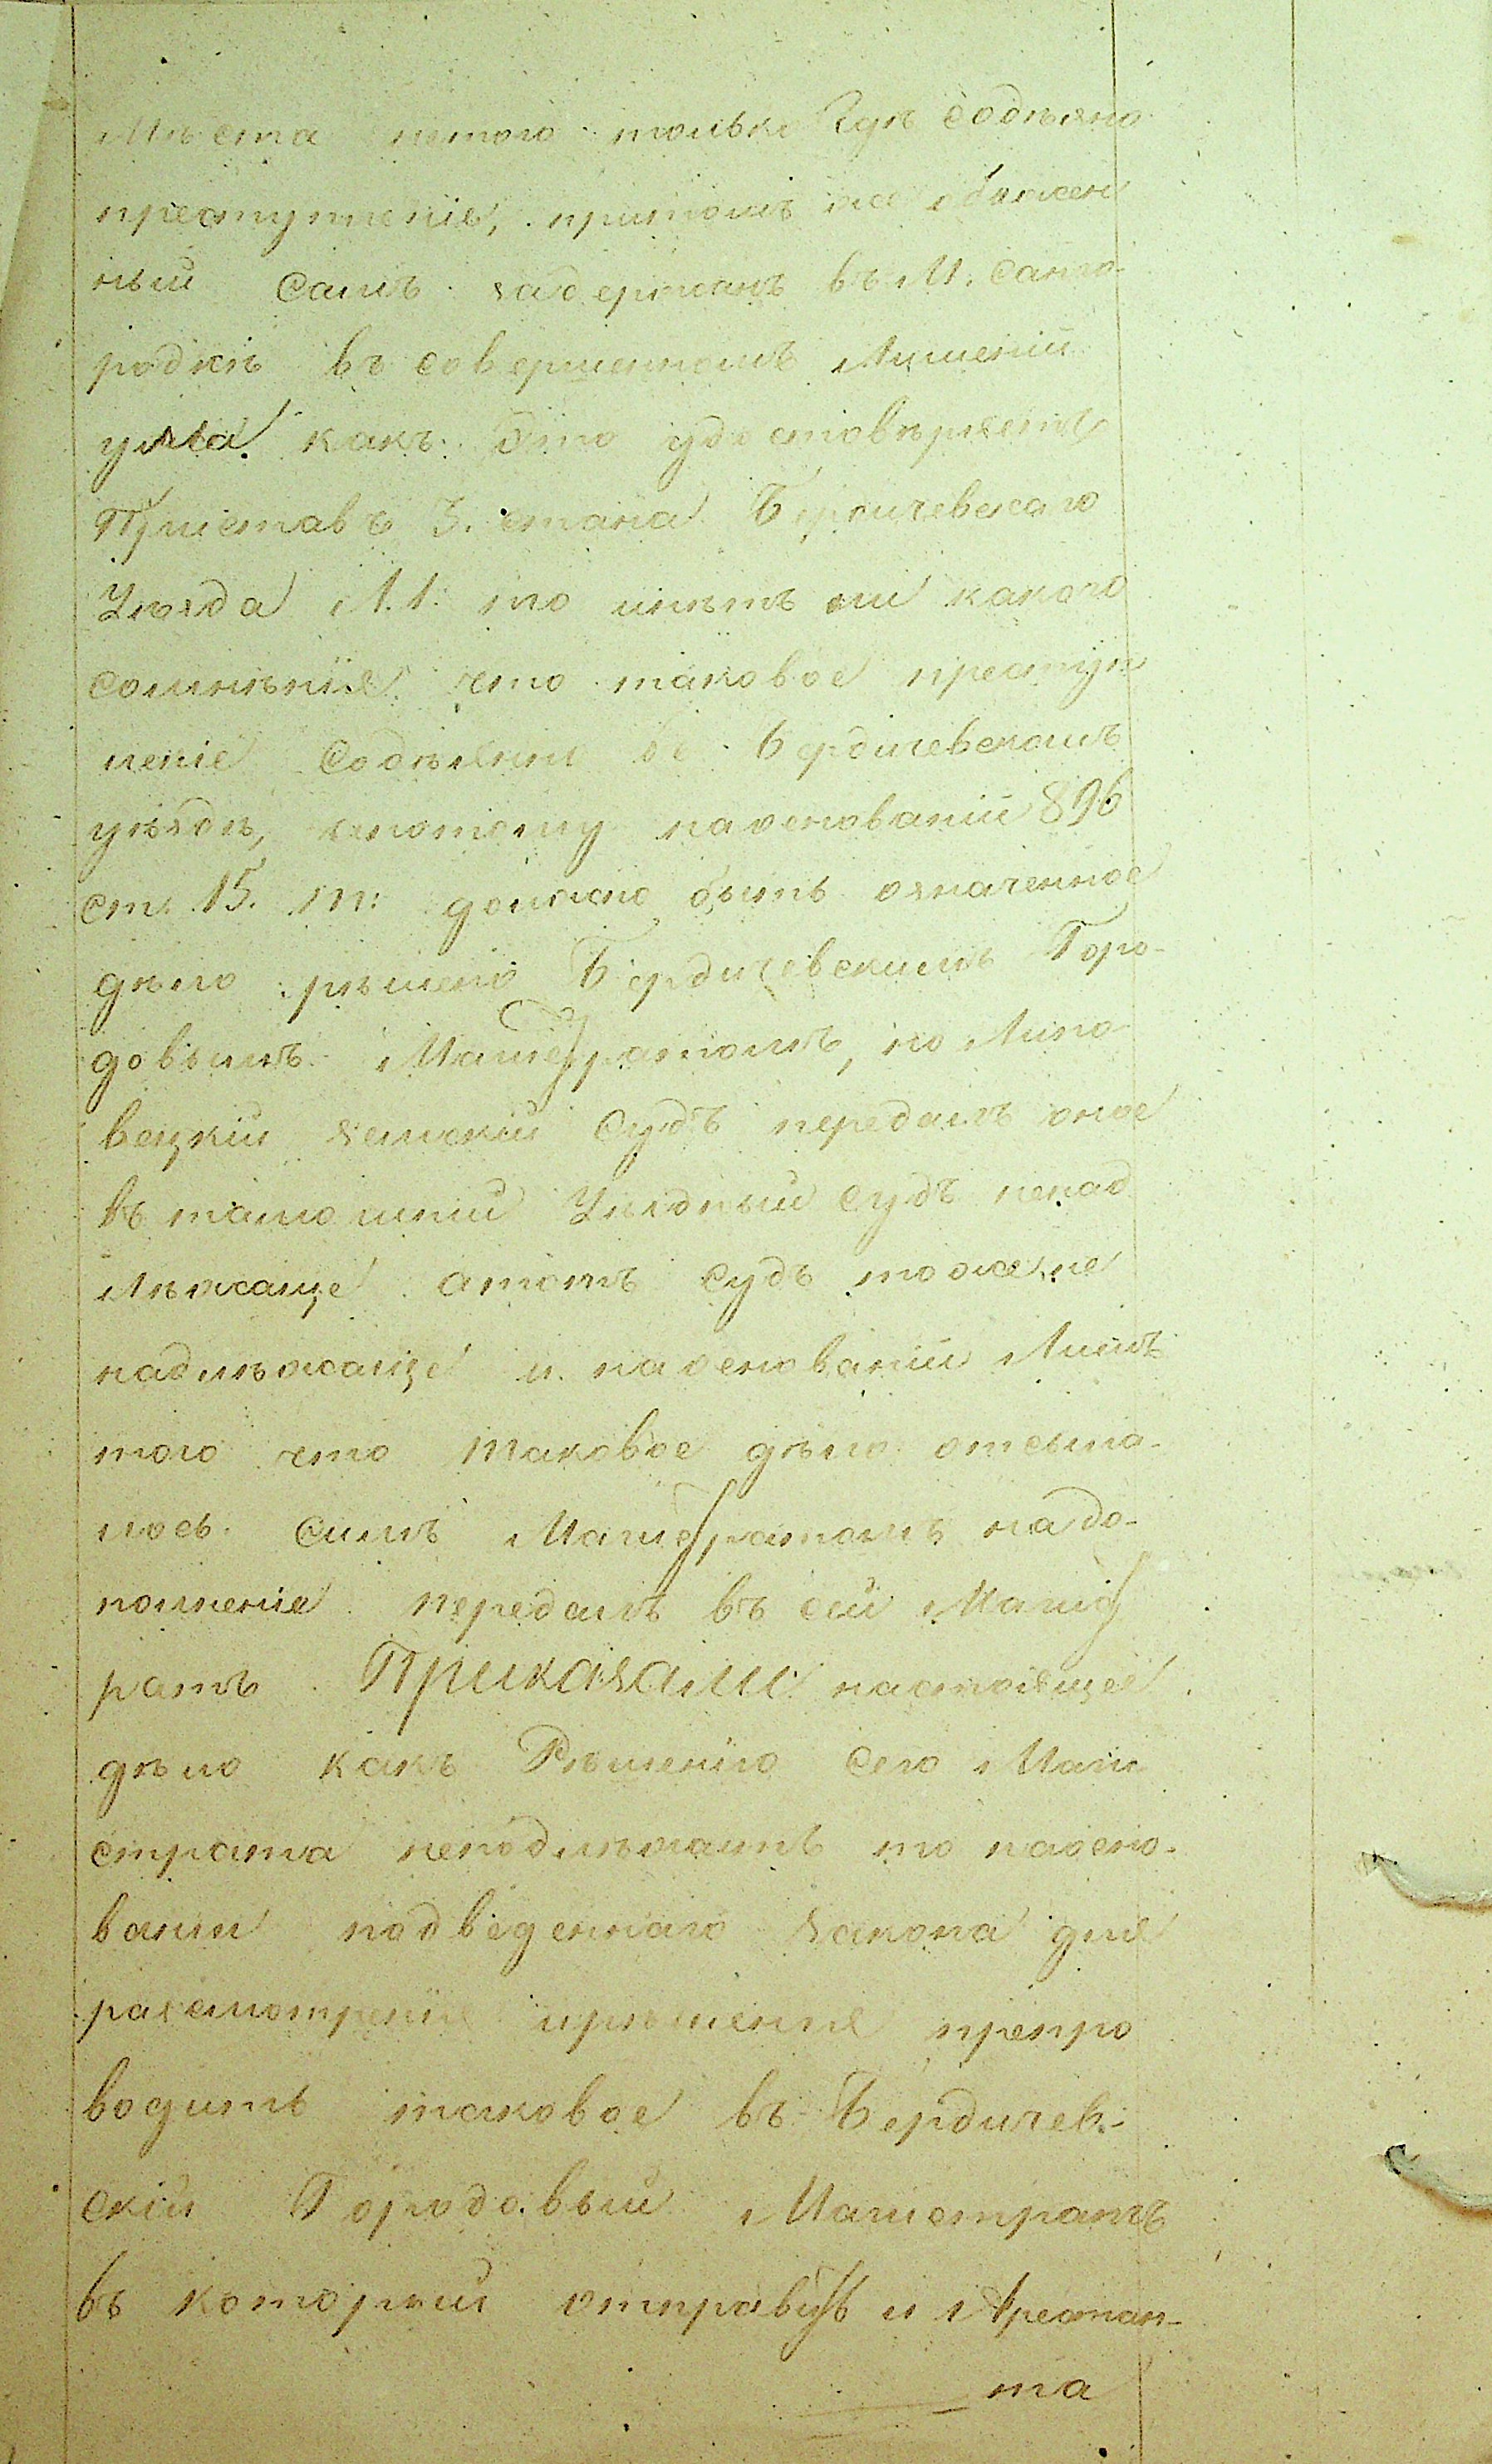 Мѣста итого только гдѣ содѣяно
преступленіе, притомъ же обвинен
ный самъ задержанъ въ М. Самго-
родкѣ въ совершенномъ Лишеніи
ума какъ это удостовѣряетъ
Приставъ 3. стана Бердичевскаго
Уѣзда Л. 1. то нѣтъ ни какого
сомнѣнія что таковое преступ
леніе содѣянно въ Бердичевскомъ
уѣздѣ, ипотому наоснованіи 896
ст. 15. т: должно быть означенное
дѣло рѣшено Бердичевскимъ Горо-
довымъ Магистратомъ, но Липо
вецкій земскій Судъ передалъ оное
въ тамошній Уѣздный Судъ ненад
лѣжаще атотъ судъ тоже не
надлѣжаще и наоснованіи Лишъ
того что таковое дѣло отсыла-
лось симъ Магистратомъ на до-
полненіе передалъ въ сей Магист
ратъ Приказали настоящее
дѣло какъ Рѣшенію сего Маги
страта неподлѣжатъ то наосно-
ваніи подведеннаго закона для
разсмотренія ирѣшенія препро
водить таковое въ Бердичев-
скій Городовый Магистратъ
въ который отправить и Арестан-
та